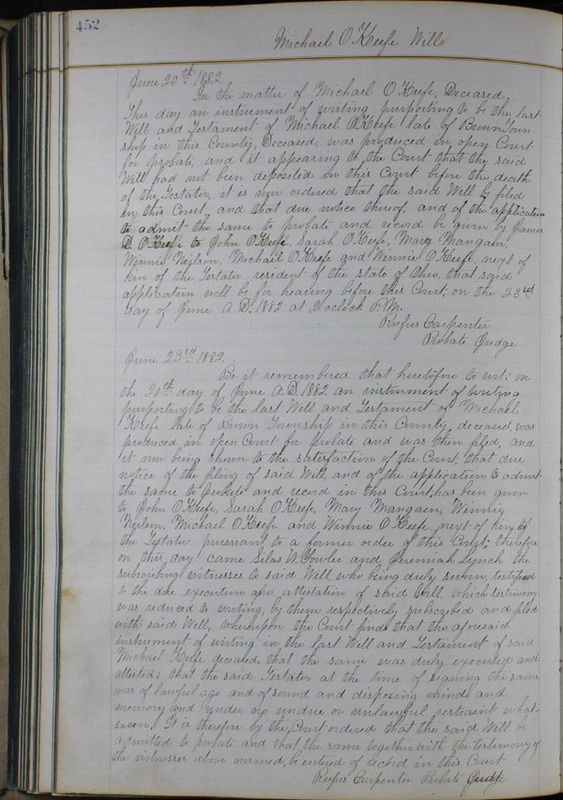 452
Michael O'Keefe Will
June 20th 1882.
In the matter of Michael O'Keefe, Deceased,
This day an instrument of writing purporting to be the last
Will and Testament of Michael O'Keefe late of Brown Town-
ship in this County, Deceased, was produced in open Court
for probate, and it appearing to the Court that the said
Will had not been deposited in this Court before the death
of the Testator, it is now ordered that the said Will be filed
in this Court, and that due notice thereof, and of the application
to admit the same to probate and record be given by James
D. O'Keefe to John O'Keefe, Sarah O'Keefe, Mary Mangain,
Winnie Michael O'Keefe and Winnie O'Keefe, next of
kin of the Testator resident of the state of Ohio, that said
application will be for hearing before this Court, on the 23rd
day of June A.D. 1882 at 2 o'clock P.M.
Rufus Carpenter
Probate Judge
June 23rd 1882.
Be it remembered that heretofore to wit: on
the 20th day of June A.D. 1882 an instrument of writing
purporting to be the last Will and Testament of Michael
Keefe late of Brown Township in this County deceased, was
produced in open Court for probate and was then filed, and
it now being shown to the satisfaction of the Court, that due
notice of the filing of said Will and of the application to admit
the same to probate and record in this Court, has been given
to John O'Keefe, Sarah O'Keefe, Mary Mangain, Winnie
Michael O'Keefe and Winnie O'Keefe, next of kin of
the Testator pursuant to a former order of this Court; therefore
on this day came Silas W. Fowler and Jeremiah Lynch the
subscribing witnesses to said Will, who being duly sworn, testified
to the due execution and attestation of said Will which testimony
was reduced to writing, by them respectively subscribed and filed
with said Will, whereupon the Court finds that the aforesaid
instrument of writing is the last Will and Testament of said
Michael Keefe deceased, that the same was duly executed and
attested; that the said Testator at the time of signing the same
was of lawful age and of sound and disposing mind and
memory and under no undue or unlawful restraint what-
soever. It is therefore by the Court ordered that the said Will be
admitted to probate and that the same together with the testimony of
the witnesses above named, be entered of record in this Court
Rufus Carpenter Probate Judge